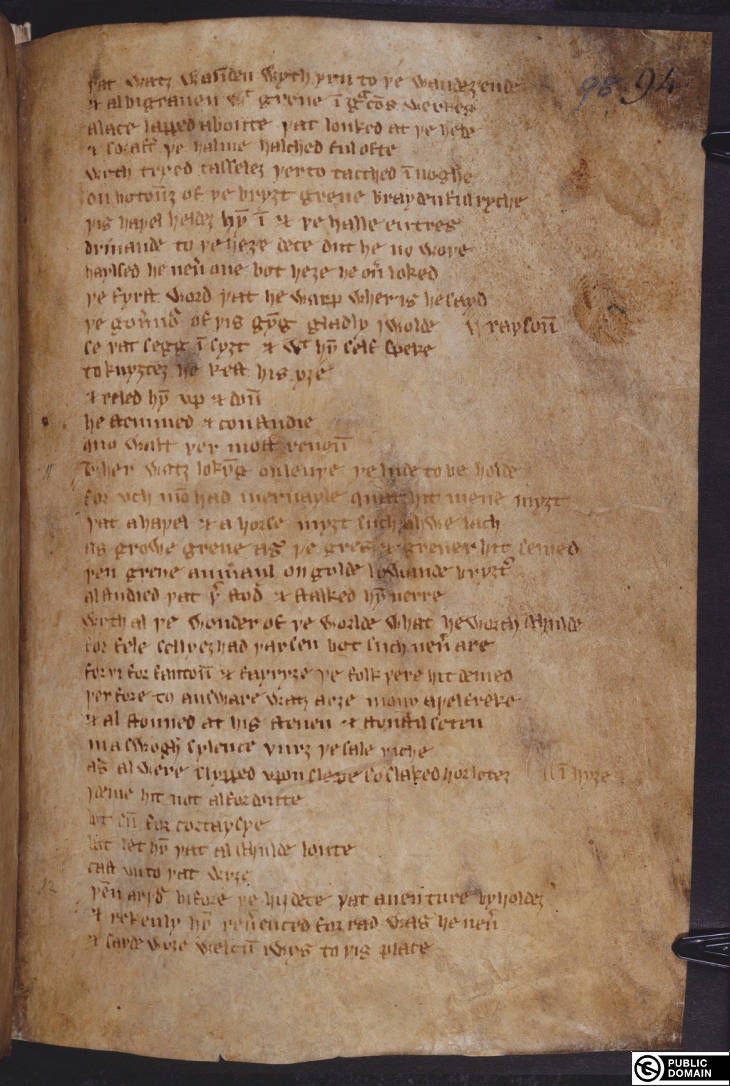 þat watz wūnden wyth yrn to þe wandez ende
& al bigrauen wt grene ī gracōs werkes
a lace lapped aboute þat louked at þe hede
& so aft' þe halme halched ful ofte
wyth tryed tasselez þerto tacched īnoghe
on botoūz of þe bryȝt grene brayden ful ryche
þis haþel heldez hȳ ī & þe halle entres
driuande to þe heȝe dece dut he no woþe
haylsed he neū one bot heȝe he oū loked
þe fyrst word þat he warp wher is he sayd
þe goūnor of þis gȳg gladly I wolde
se þat segg ī syȝt & wt hȳ self speke raysoū
to knyȝtez he kest his yȝe
& reled hȳ vp & doū
he stemmed & con studie
quo walt þer most renoū
Ther watz lokȳg on lenþe þe lude to be holde
for vch mō had meruayle quat hit mene myȝt
þat a haþel & a horse myȝt such a hwe lach
as growe grene as þe gres & grener hit semed
þen grene aumayl on golde lowande bryȝter
al studied þat þer stod & stalked hȳ nerre
wyth al þe wonder of þe worlde what he worch schulde
for fele sellyez had þay sen bot such neū are
for þi for fantoū & fayryȝe þe folk þere hit demed
þer fore to answare watz arȝe mony aþel freke
& al stouned at his steuen & stonstil seten
in a swoghe sylence þurȝ þe sale riche
as al were slypped vpon slepe so slaked hor lotez ī hyȝe
I deme hit not al for doute
bot sū for cortaysye
bot let hȳ þat al schulde loute
cast vnto þat wyȝe
þēn arþor bifore þe hiȝ dece þat auenture byholdez
& rekenly hȳ reūenced for rad was he neū
& sayde wyȝe welcū iwys to þis place
98 94
PUBLIC
DOMAIN